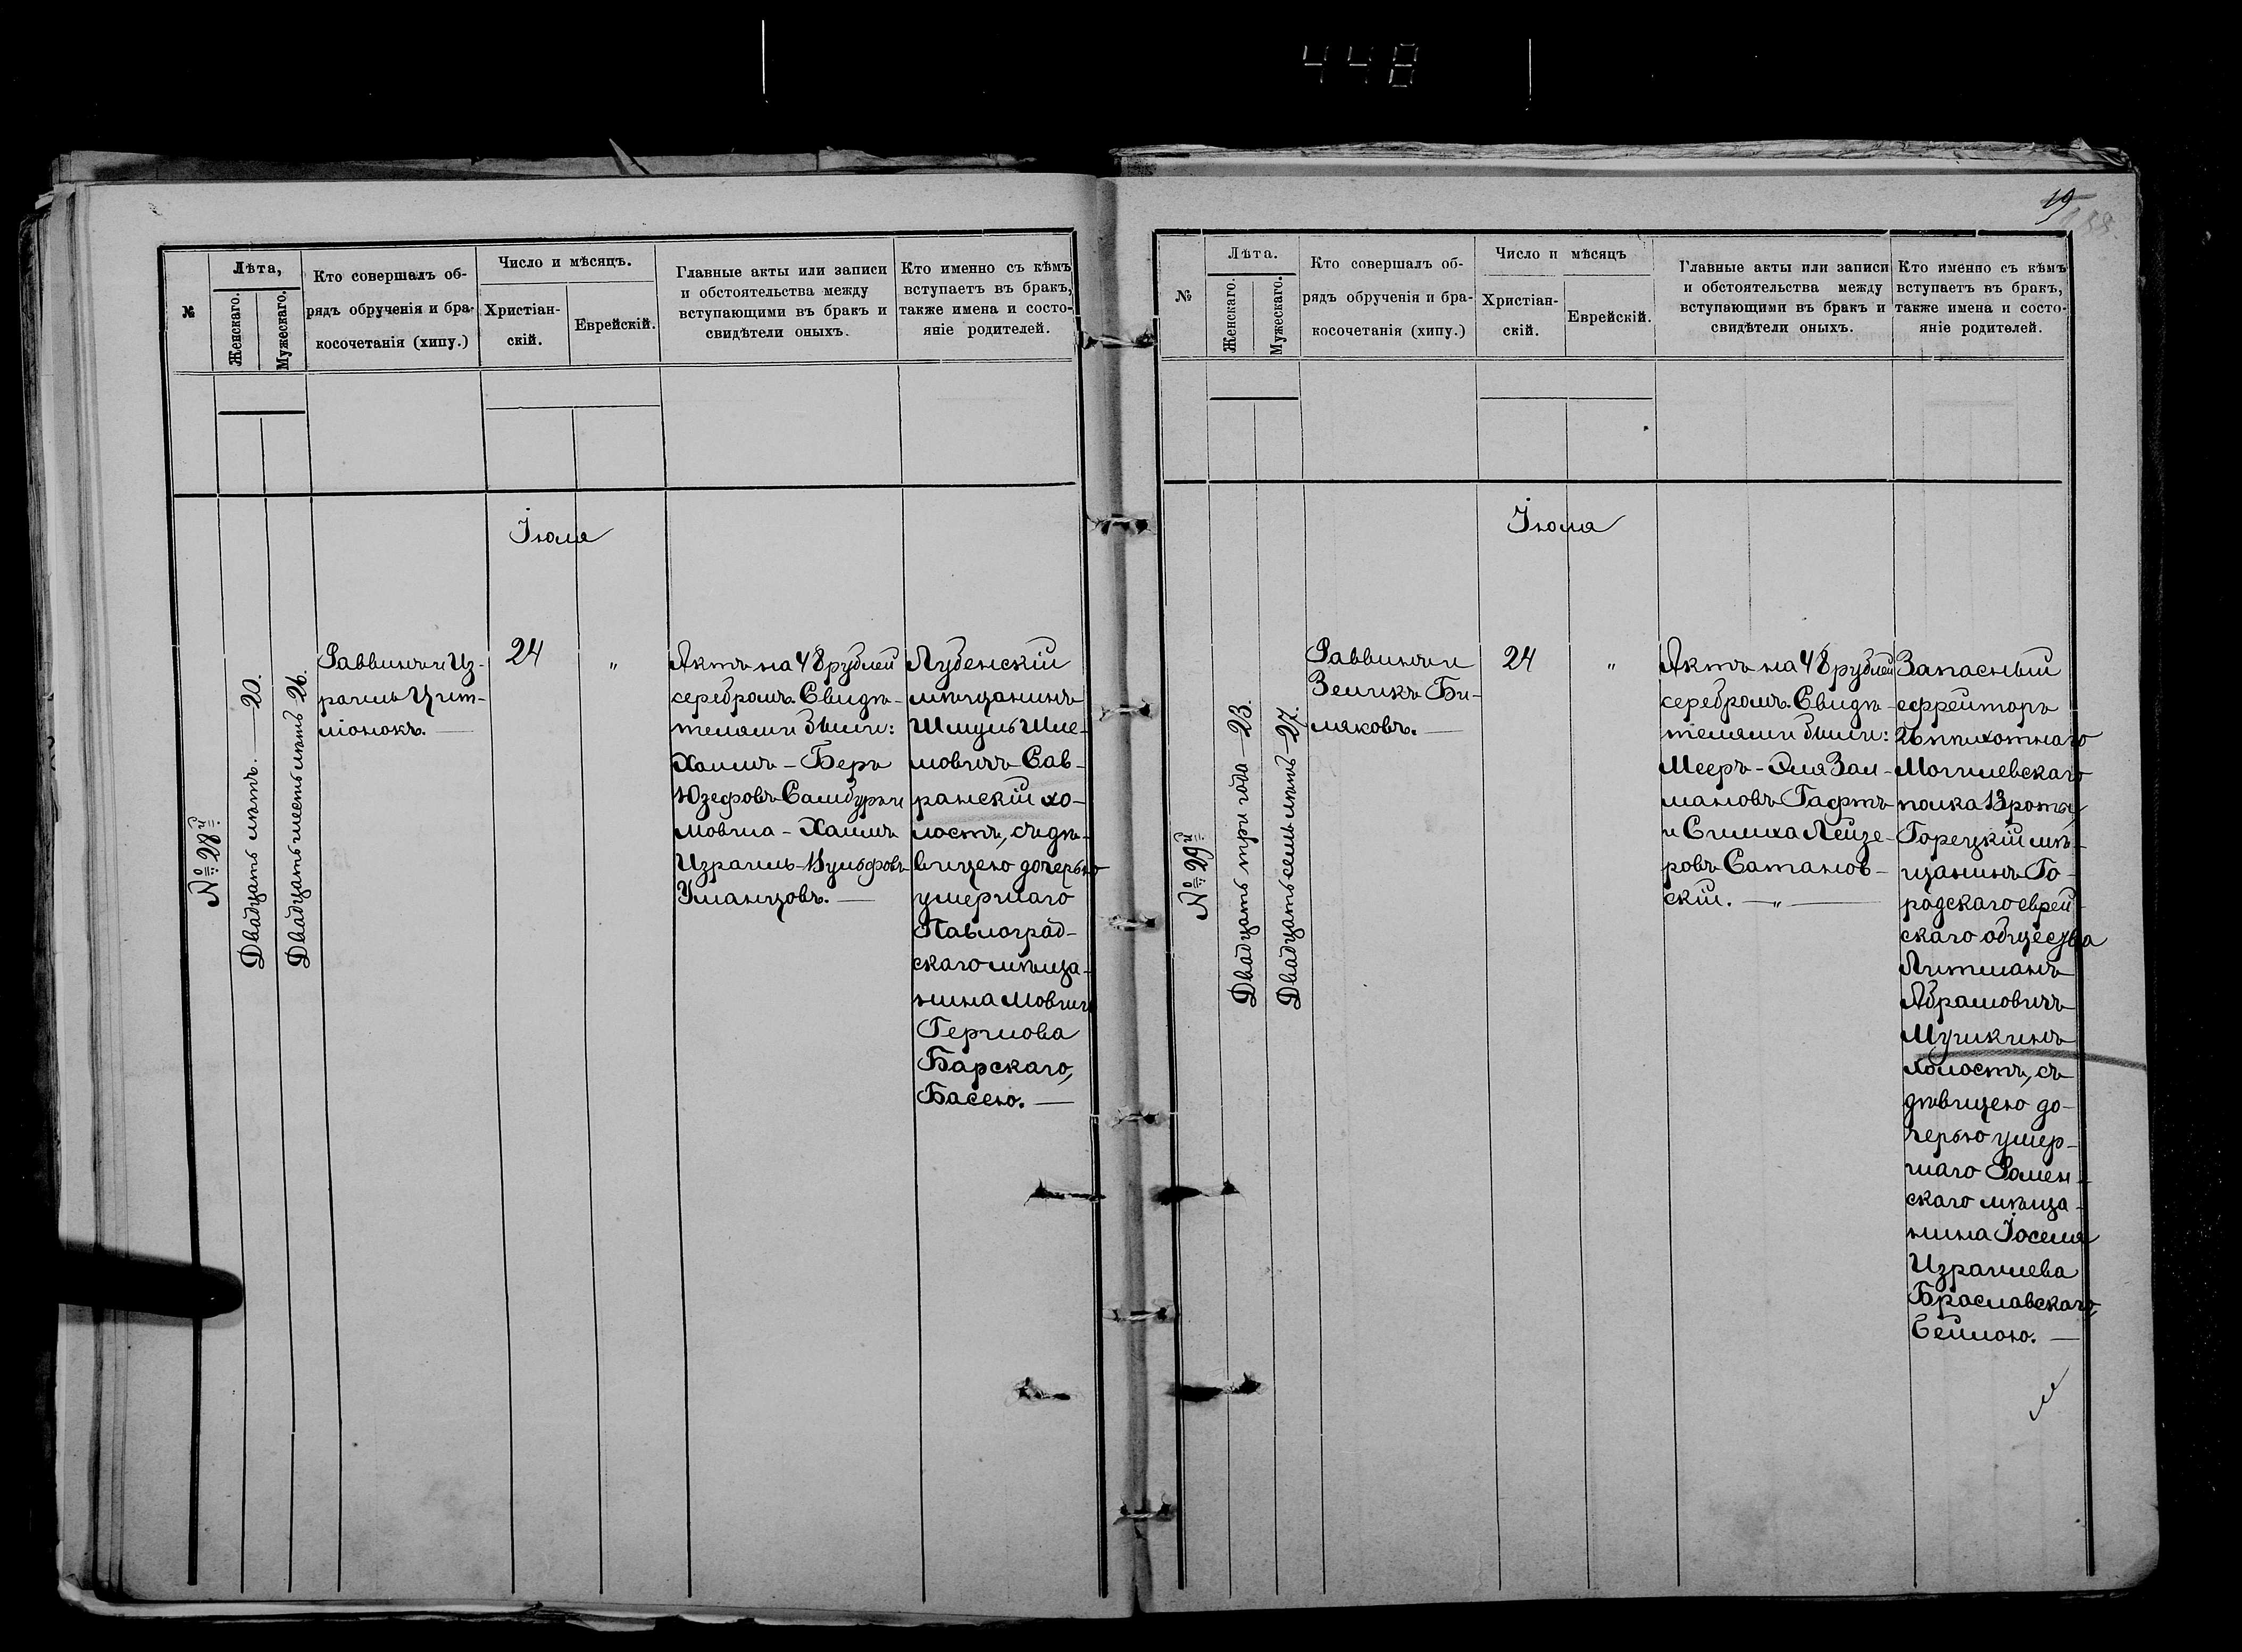 448
№
Лѣта,
Женскаго.
Мужескаго.
Кто совершалъ об-
рядъ обрученія и бра-
косочетанія (хипу.)
Число и мѣсяцъ.
Христіан-
скій.
Еврейскій.
Главные акты или записи
и обстоятельства между
вступающими въ бракъ и
свидѣтели оныхъ.
Кто именно съ кѣмъ
вступаетъ въ бракъ,
также имена и состо-
яніе родителей.
Іюля
№ 28й
Двадцать лѣтъ. — 20.
Двадцать шесть лѣтъ 26.
Раввинъ и Из-
раиль Цит-
ліонокъ. —
24
"
Актъ на 48 рублей
серебромъ. Свидѣ-
телями были:
Хаимъ-Беръ
Юзефовъ Самбуръ и
Мовша-Хаимъ
Израиль-Вульфовъ
Уманцовъ. —
Лубенскій
мѣщанинъ
Шмуль Шле-
мовичъ Сав-
ранскій хо-
лостъ, съ дѣ-
вицею дочерью
умершаго
Павлоград-
скаго мѣща-
нина Мовши
Гершова
Барскаго,
Басею. —
19
№
Лѣта.
Женскаго.
Мужескаго.
Кто совершалъ об-
рядъ обрученія и бра-
косочетанія (хипу.)
Число и мѣсяцъ
Христіан-
скій.
Еврейскій.
Главные акты или записи
и обстоятельства между
вступающими въ бракъ и
свидѣтели оныхъ.
Кто именно съ кѣмъ
вступаетъ въ бракъ,
также имена и состо-
яніе родителей.
Іюля
№ 29й
Двадцать три года — 23.
Двадцать семь лѣтъ — 27.
Раввинъ и
Зеликъ Би-
ляковъ. —
24
"
Актъ на 48 рублей
серебромъ. Свидѣ-
телями были:
Мееръ-Эля Зал-
мановъ Гафтъ
и Симха Лейзе-
ровъ Сатанов-
скій. — " —
Запасный
ефрейторъ
26 пѣхотнаго
Могилевскаго
полка 13 роты,
Горецкій мѣ-
щанинъ Го-
родскаго еврей-
скаго общества
Литманъ
Абрамовичъ
Мушкинъ
холостъ, съ
дѣвицею до-
черью умер-
шаго Ромен-
скаго мѣща-
нина Іоселя
Израилева
Браславскаго,
Бейлою. —